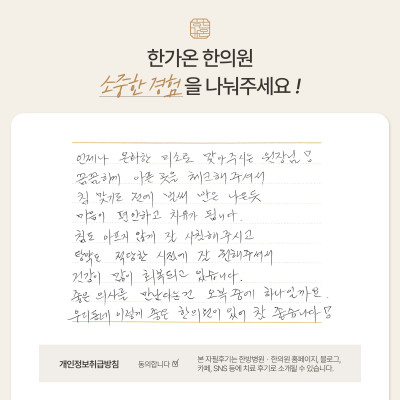 한가온 한의원
소중한 경험을 나눠주세요!
언제나 온화한 미소로 맞아주시는 원장님♡
꼼꼼하게 아픈 곳을 체크해주셔서
침 맞기도 전에 벌써 반은 나은듯
마음이 편안하고 치유가 됩니다.
침도 아프지 않게 잘 시침해주시고
탕약도 적당한 시점에 잘 권해주셔서
건강이 많이 회복되고 있습니다.
좋은 의사를 만난다는건 오복 중에 하나일까요.
우리동네 이렇게 좋은 한의원이 있어 참 좋습니다♡
개인정보취급방침 동의합니다 ☑
본 자필후기는 한방병원 · 한의원 홈페이지, 블로그,
카페, SNS 등에 치료 후기로 소개될 수 있습니다.